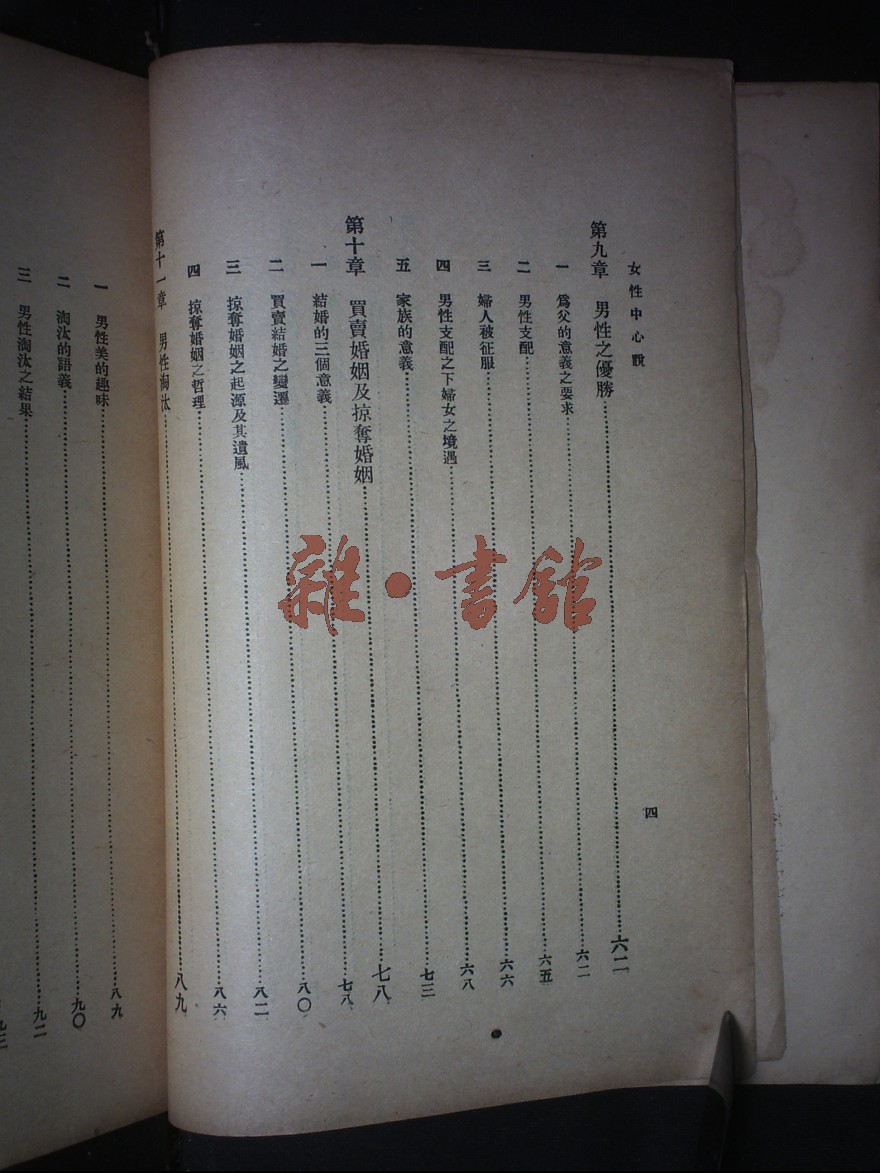 女性中心說 四
第九章 男性之優勝………六二
一 爲父的意義之要求………六二
二 男性支配………六五
三 婦人被征服………六六
四 男性支配之下婦女之境遇………六八
五 家族的意義………七三
第十章 買賣婚姻及掠奪婚姻………七八
一 結婚的三個意義………七八
二 買賣結婚之變遷………八〇
三 掠奪婚姻之起源及其遺風………八二
四 掠奪婚姻之哲理………八六
第十一章 男性淘汰………八九
一 男性美的趣味………八九
二 淘汰的語義………九〇
三 男性淘汰之結果………九二
九三
雜·書館